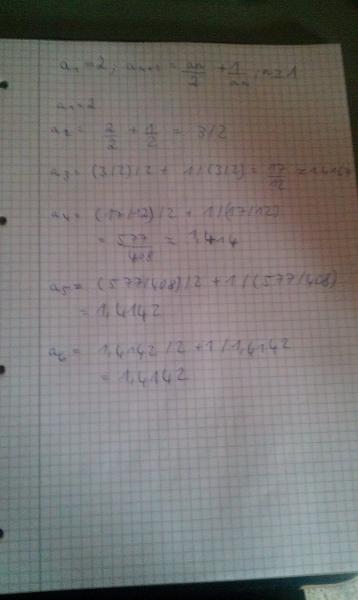 a₁ = 2 ; aₙ₊₁ = aₙ/2 + 1/aₙ ; n ≥ 1
a₁ = 2
a₂ = 2/2 + 1/2 = 3/2
a₃ = (3/2)/2 + 1/(3/2) = 17/12 = 1,4167
a₄ = (17/12)/2 + 1/(17/12)
= 577/408 = 1,414
a₅ = (577/408)/2 + 1/(577/408)
= 1,4142
a₆ = 1,4142/2 + 1/1,4142
= 1,4142